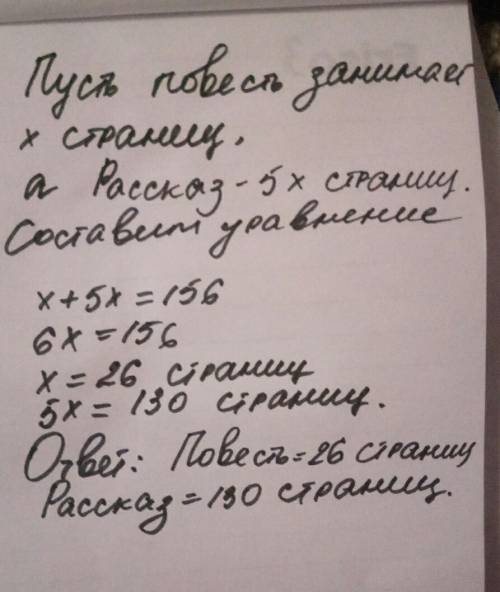 Пусть повесть занимает
х страниц,
а Рассказ - 5х страниц.
Составим уравнение
х+5х=156
6х=156
х=26 страниц
5х=130 страниц.
Ответ: Повесть=26 страниц
Рассказ=130 страниц.